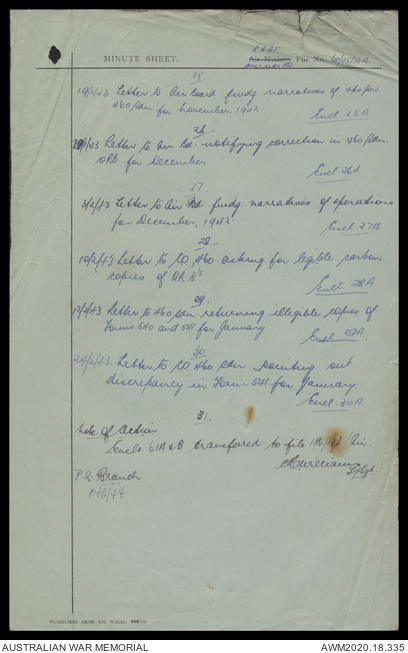 MINUTE SHEET.
R.A.A.F.
Air Ministry File No.
Overseas HQ
25
19/1/43 Letter to Air Board fwdg narratives of ops for
460 Sdn for November, 1942
Encl 25A
26
29/1/43 Letter to Air Bd. notifying correction in 460 Sdn.
ORB for December
Encl 26A
27
3/2/43 Letter to Air Bd fwdg narratives of operations
for December, 1942
Encl 27A
28
10/2/43 Letter to CO, 460 asking for legible carbon
copies of O.R.B's
Encl 28A
29
17/2/43 Letter to 460 Sdn returning illegible copies of
Forms 540 and 541 for January
Encl 29A.
30
24/2/43. Letter to CO 460 Sdn pointing out
discrepancy in Form 541 for January
Encl. 30A.
31.
Note of Action
Encls. 61A & B transferred to file /Air.
Williams
F/Sgt.
P.R. Branch
/11/44
AUSTRALIAN WAR MEMORIAL
AWM2020.18.335